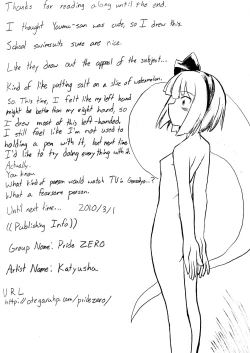 Thanks for reading along until the end.
I thought Youmu-son was cute, so I drew this.
School swimsuits sure are nice.
Like they draw out the appeal of the subject...
Kind of like putting salt on a slice of watermelon.
So This time, I felt like my left hand
might be better than my right hand, so
I drew most of this left-handed.
I still feel like I'm not used to
holding a pen with it, but next time
I'd like to try doing everything with it.
Actually,
You know
What kind of person would watch TV in
What a fearsome person.
Until next time... 2010/3/1
((Publishing Info))
Group Name: Pride ZERO
Artist Name: Katyusha
URL